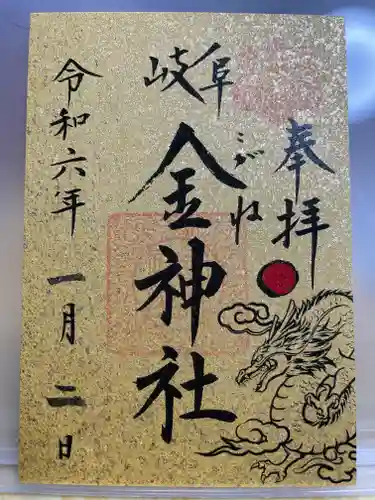 奉拝
岐阜
金神社
こがね
令和六年一月二日